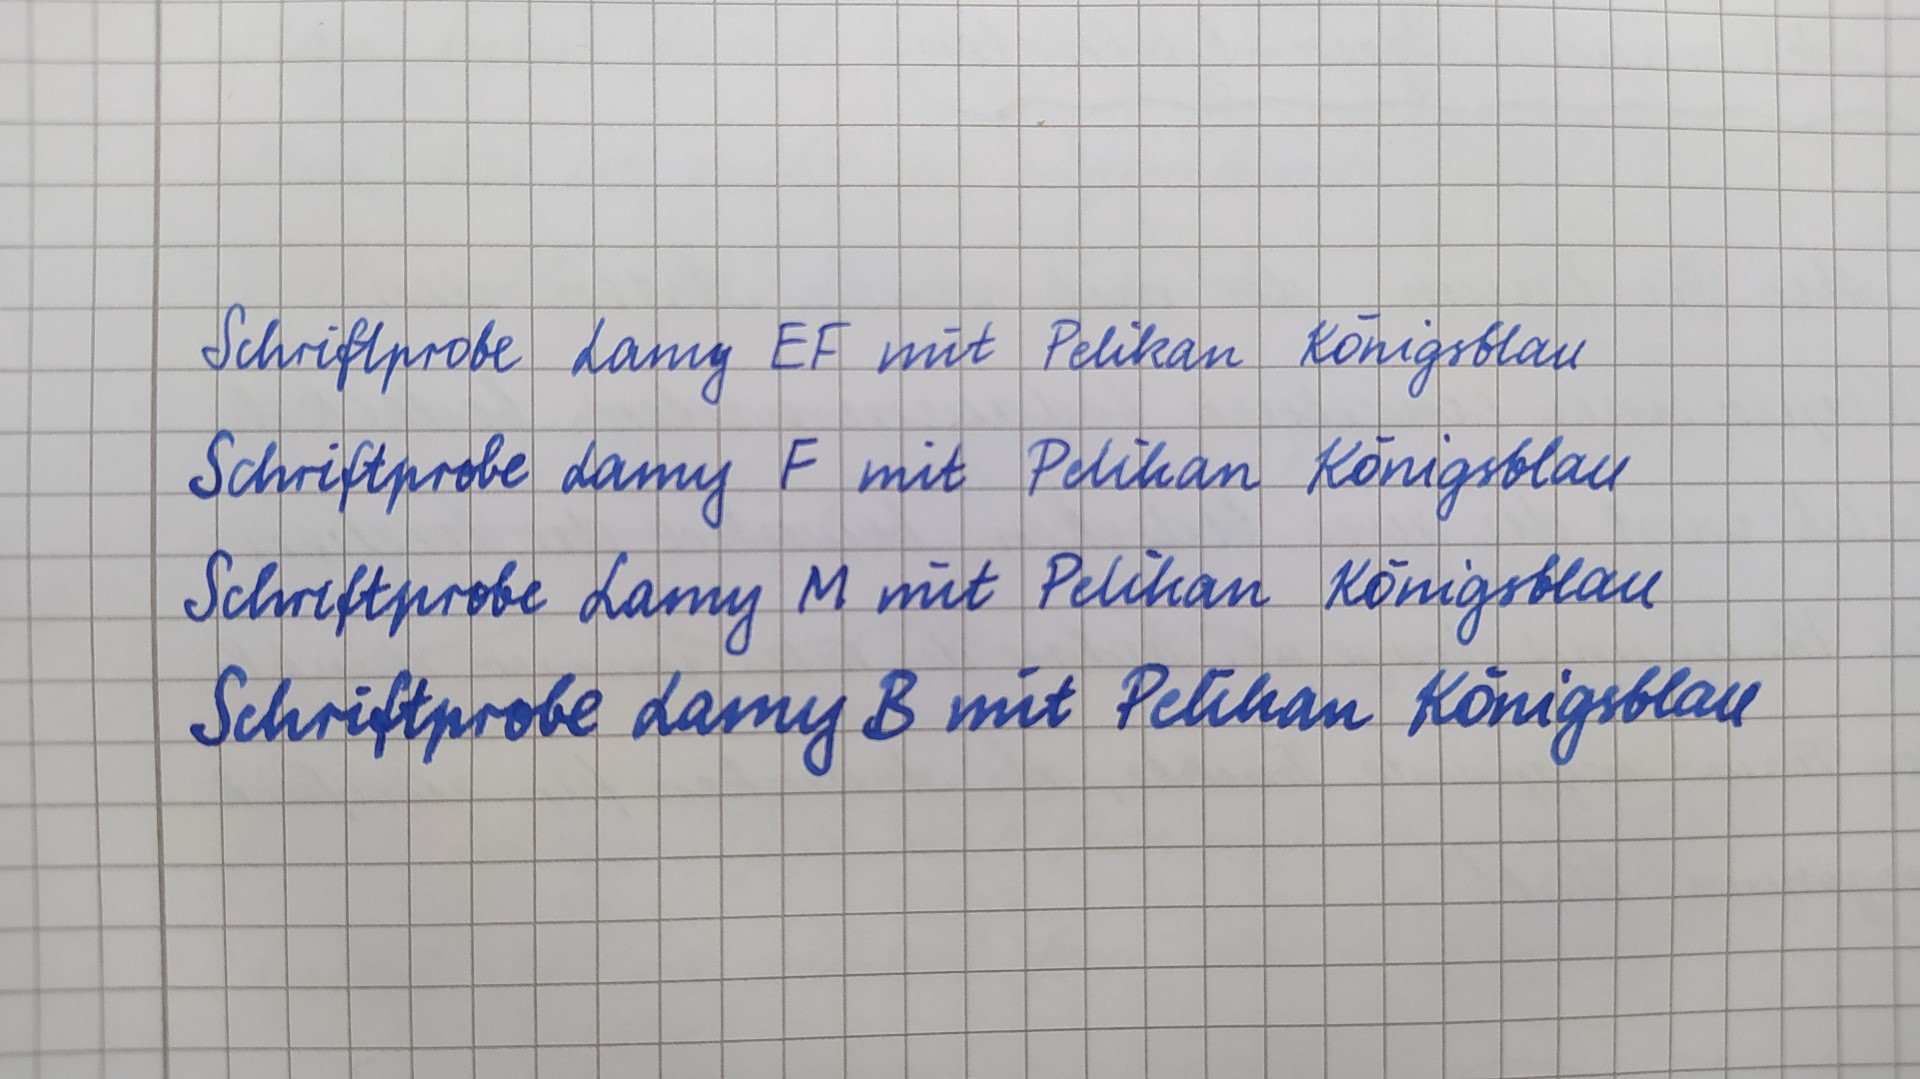 Schriftprobe Lamy EF mit Pelikan Königsblau
Schriftprobe Lamy F mit Pelikan Königsblau
Schriftprobe Lamy M mit Pelikan Königsblau
Schriftprobe Lamy B mit Pelikan Königsblau